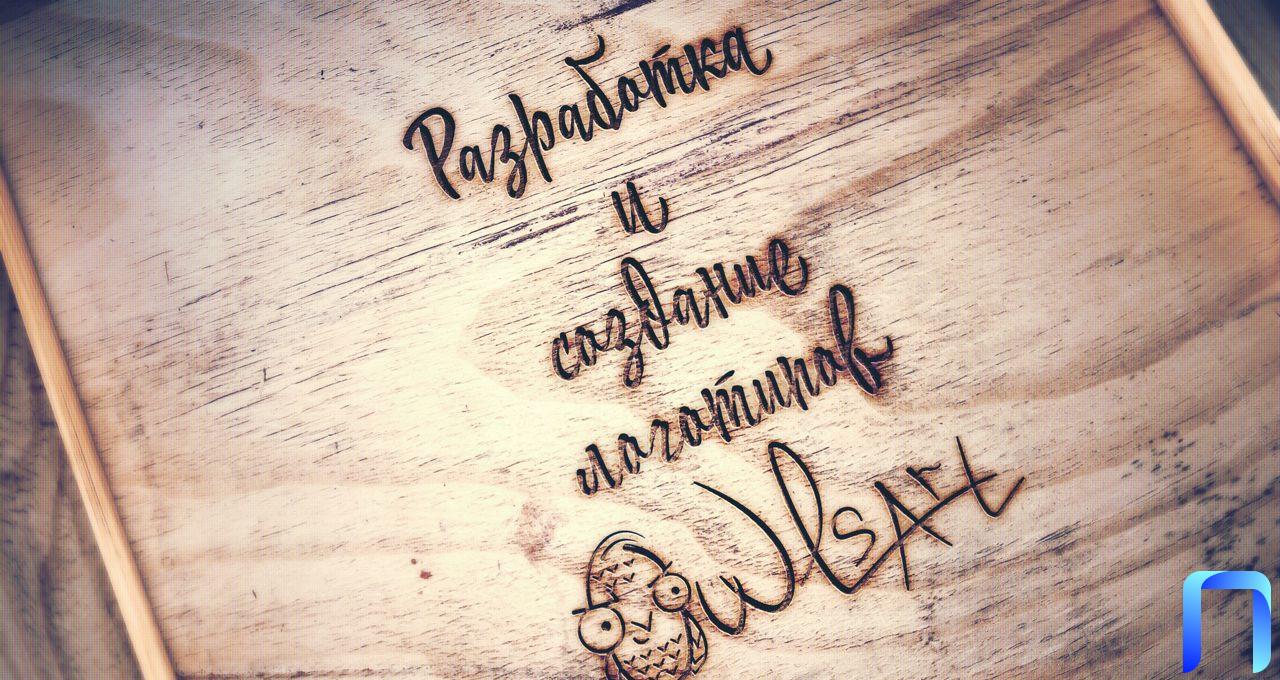 Разработка
и
создание
логотипов
OwlsArt